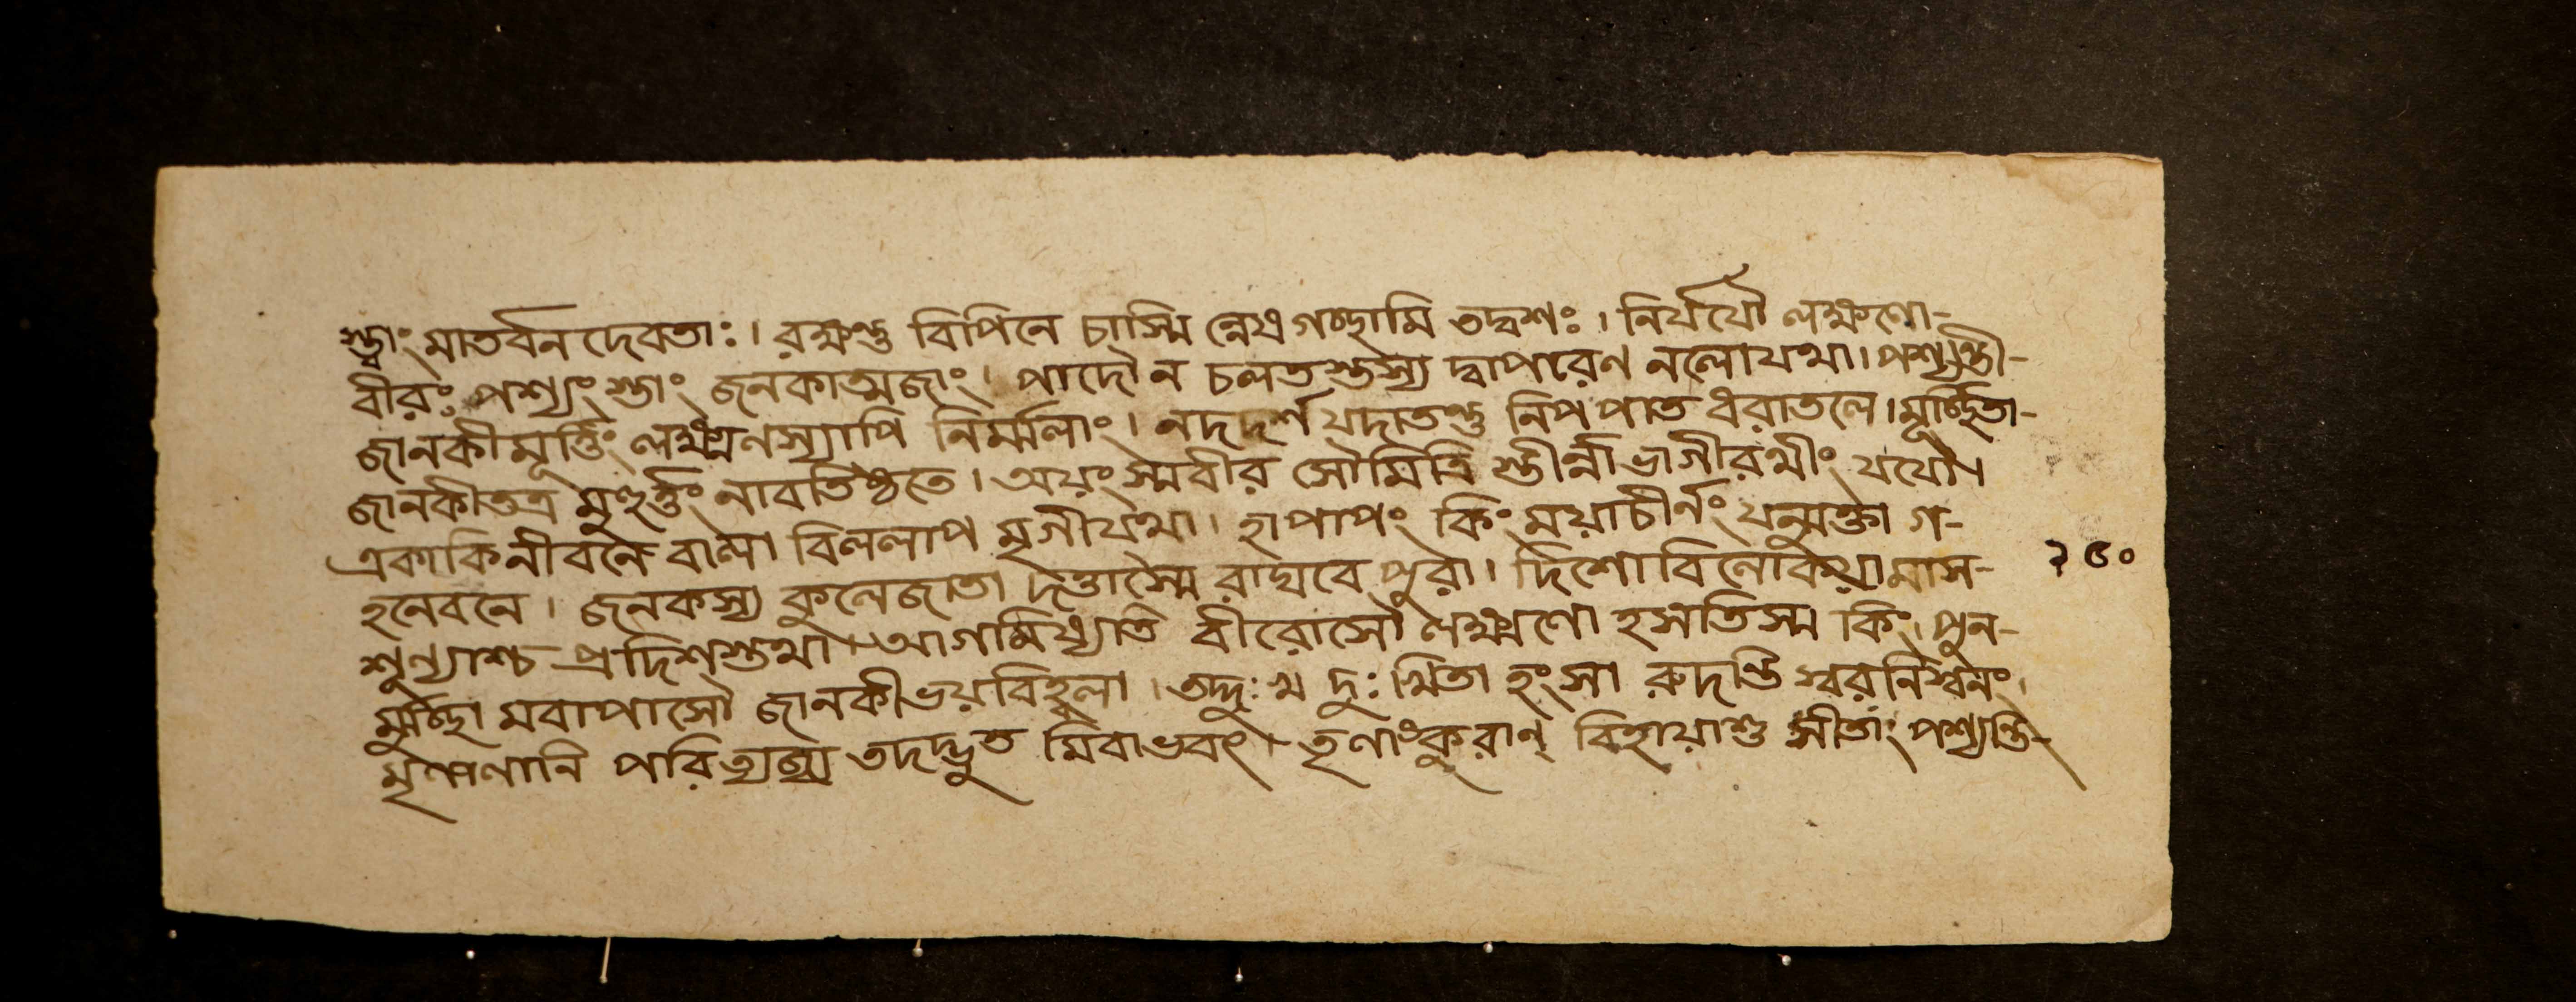 স্ত্বাং মাতর্বনদেবতাঃ। রক্ষন্তু বিপিনে চাস্মি ন্নেষ গচ্ছামি তদ্বশঃ। নির্যযৌ লক্ষণো-
বীরঃ পশ্যং স্তাং জনকাত্মজাং। পাদৌ ন চলত স্তস্য দ্বাপরেণ নলোযথা। পশ্যন্তী-
জানকীমূর্ত্তিং লক্ষ্মণস্যাপি নির্ম্মলাং। নদদর্শ যদাতন্তু নিপপাত ধরাতলে। মূর্চ্ছিতা-
জানকীতত্র মুহূর্ত্তং নাবতিষ্ঠতে। অয়ং স্মবীর সৌমিত্রি স্তীর্ন্না ভাগীরথীং যযৌ।
একাকিনীবনে বালা বিললাপ মৃগীযথা। হাপাপং কিং ময়াচীর্নং যন্মুক্তা গ-
হনেবনে। জনকস্য কুলেজাতা দত্তাস্মৈ রাঘবে পুরা। দিশোবিলোকয়ামাস-
শুন্যাশ্চ প্রদিশস্তথা। আগমিষ্যতি বীরোসৌ লক্ষ্মণো হসতিস্ম কিং। পুন-
র্মূর্চ্ছা মবাপাসৌ জানকীভয়বিহ্বলা। তদ্দুঃখ দুঃখিতা হংসা রুদন্তি স্বরনিস্বনং।
মৃণালানি পরিত্যজ্য তদদ্ভুত মিবাভবৎ। তৃণাংকুরাণ্ বিহায়াশু সীতাং পশ্যন্তি-
২৫০